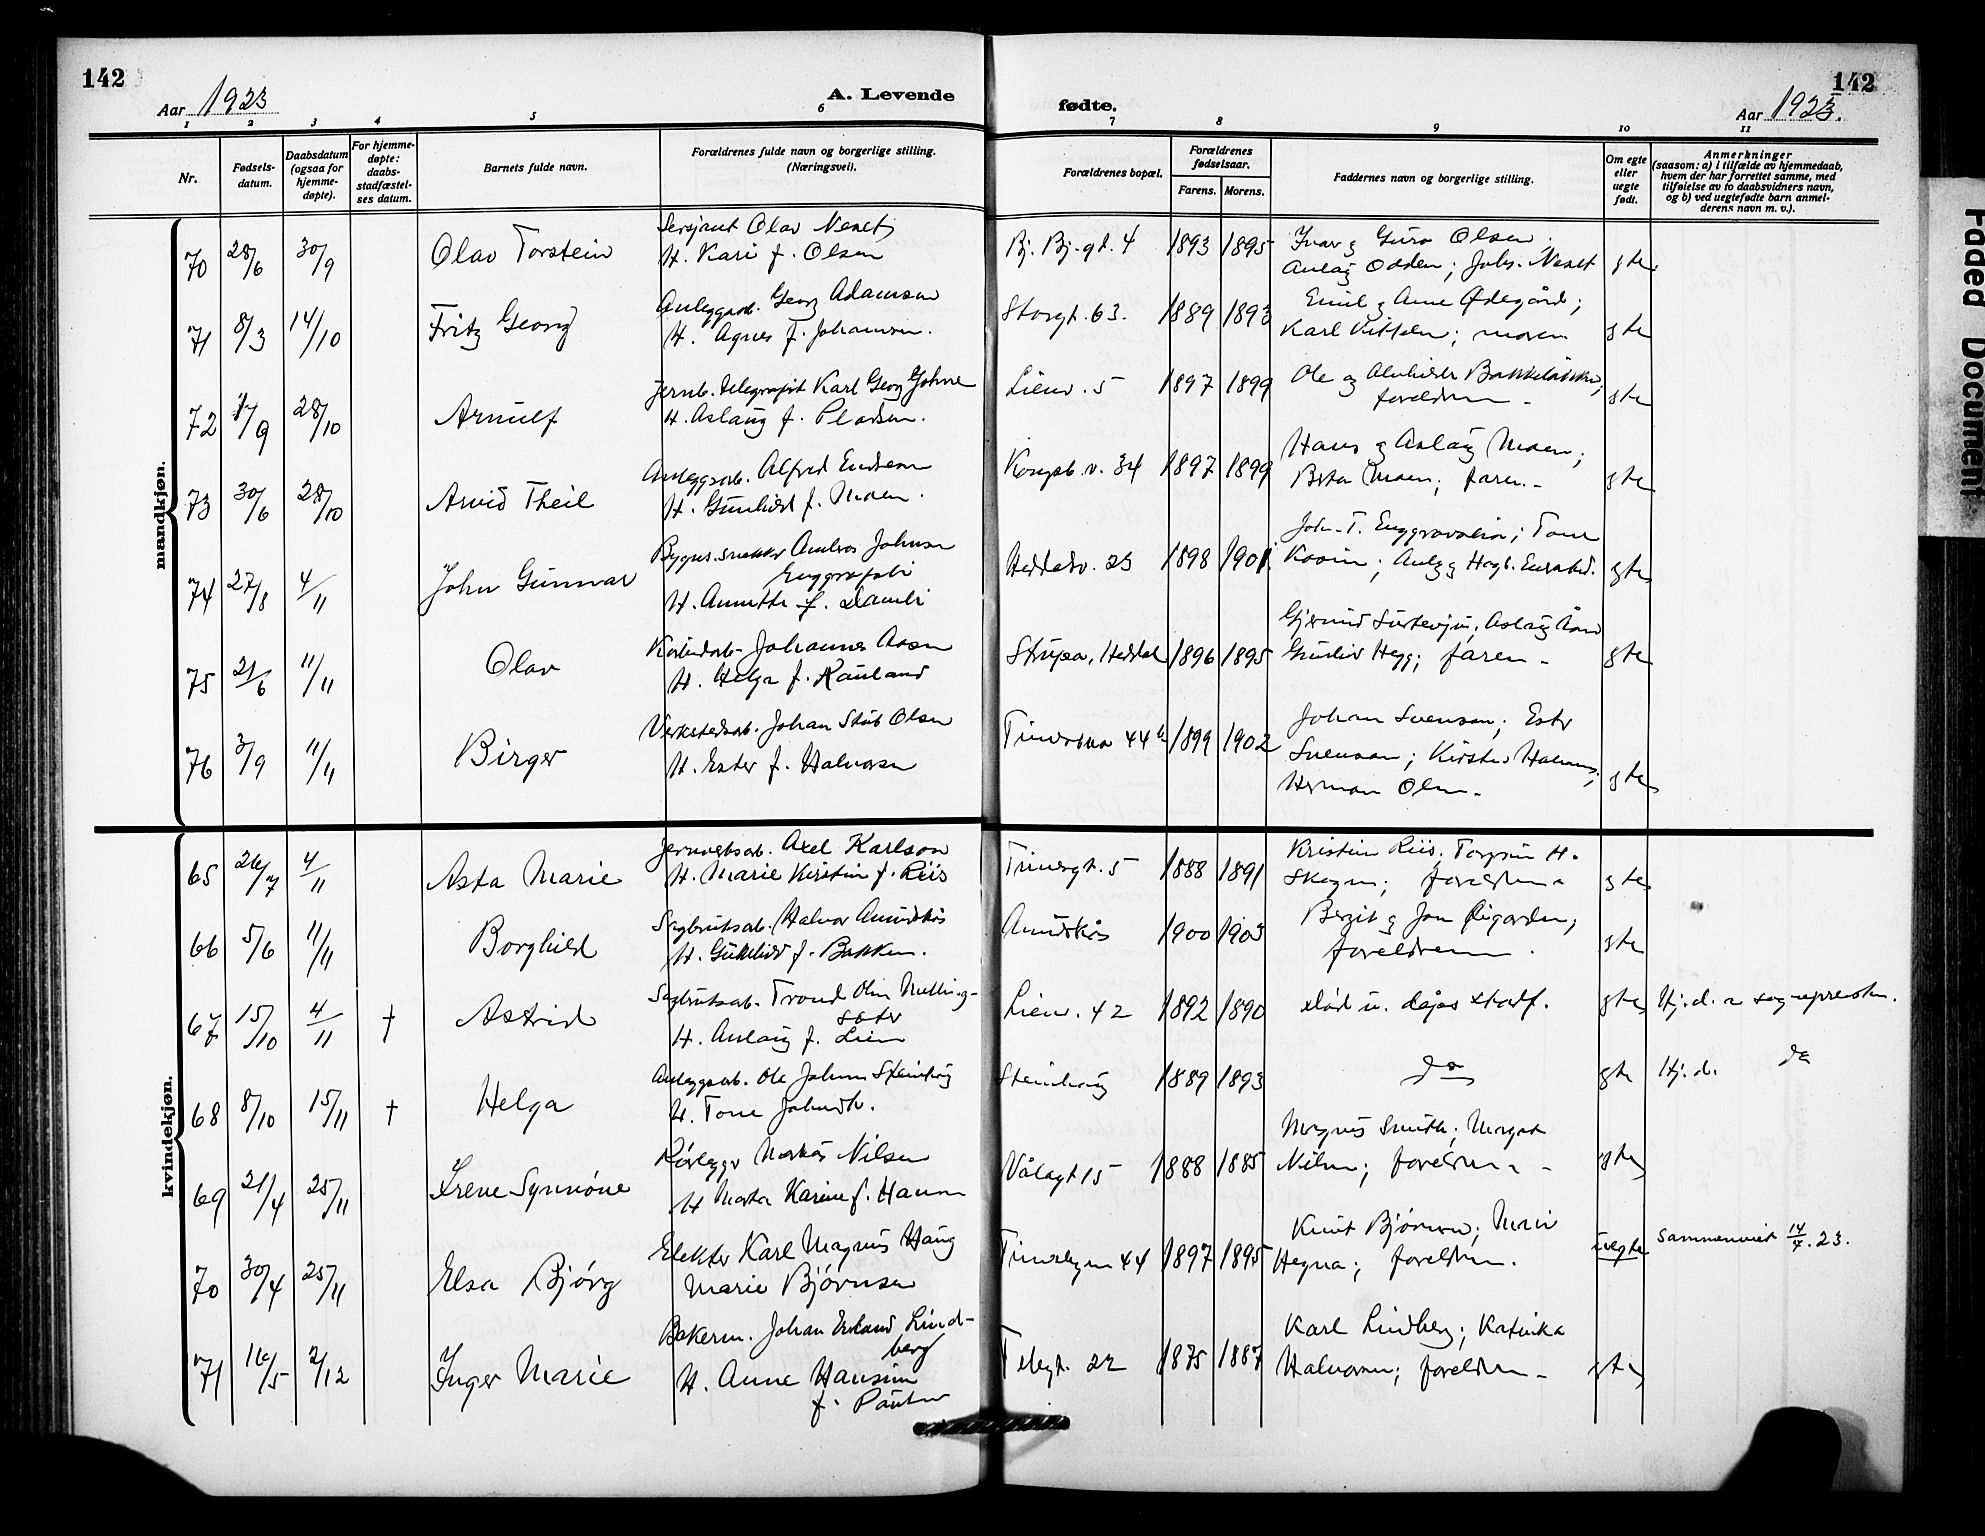 142
Aar 1923
A. Levende
fødte.
142
Aar 1923.
1 2 3 4 5 6 7 8 9 10 11
Nr.
Fødsels-
datum.
Daabsdatum
(ogsaa for
hjemme-
døpte).
For hjemme-
døpte:
daabs-
stadfæstel-
ses datum.
Barnets fulde navn.
Forældrenes fulde navn og borgerlige stilling.
(Næringsvei).
Forældrenes bopæl.
Forældrenes
fødselsaar.
Farens. Morens.
Faddernes navn og borgerlige stilling.
Om egte
eller
uegte
født.
Anmerkninger
(saasom: a) i tilfælde av hjemmedaab,
hvem der har forrettet samme, med
tilføielse av to daabsvidners navn,
og b) ved uegtefødte barn anmel-
derens navn m. v.).
mandkjøn.
70 28/6 30/9 Olav Torstein
Sersjant Olav Neset
H. Kari f. Olsen
Bj. Bj. gt. 4 1893 1895
Ivar g Guro Olsen;
Aslaug Odden; Johs. Neset
gte
71 8/3 14/10 Fritz Georg
Anleggsarb. Georg Adamsen
H. Agnes f. Johansen.
Storgt. 63. 1889 1893
Emil g Anne Ødegård;
Karl Kittelsen; moren
gte
72 17/9 28/10 Arnulf
Jernb. telegrafist Karl Georg
H. Aslaug f.
Lienv. 5 1897 1899
Ole og
foreldrene -
gte
73 30/6 28/10 Arvid Theil
Anleggsarb. Alfred Endresen
H. Gunhild f. Moen.
Kongsb. v. 34 1897 1899
Hans g Aslaug Moen;
Moen; faren -
gte
74 27/8 4/11 John Gunnar
Bygn. snekker Johnsen
H. Annette f. Damli
Heddalsv. 23 1898 1901
John T. Tone
gte
75 21/6 11/11 Olav
Johannes Aasen
H. Helga f. Rauland
Strupa, Heddal 1896 1895
Gjermund Aslaug
Hegg; faren -
gte
76 3/9 11/11 Birger
Verkstedsarb. Johan Olsen
H. Ester f. Halvorsen
Tinnesvn 44 b 1899 1902
Johan Svenson; Ester
Svenson; Kirsten Halvorsen;
Herman Olsen -
gte
kvindekjøn.
65 26/7 4/11 Asta Marie
Jernverksarb. Axel Karlson
H. Marie Kirstin f. Riis
Tinnegt. 5 1888 1891
Kristin Riis; H.
Skogen; foreldrene
gte
66 5/6 11/11 Borghild
Sagbruksarb. Halvor Amundkås
H. Gunhild f. Bakken.
Amundkås 1900 1903
Bergit g Jon Øigarden;
foreldrene.
gte
67 15/10 4/11 † Astrid
Sagbruksarb. Trond Olsen
sæter
H. Aslaug f. Lien
Lienv. 42 1892 1890
død u. dåps stadf.
gte
Hj. d. a sognepresten.
68 8/10 15/11 † Helga
Anleggsarb. Ole Johnsen Steinhaug
H. Tone Johnsdtr.
Steinhaug 1889 1893
do
gte
Hj. d. do
69 21/4 25/11 Irene Synnøve
Rørlegger Markus Nilsen
H Marta Karine f. Hansen
Vålagt 15 1888 1885
Magnus Smith; Margot
Nilsen; foreldrene -
gte
70 30/4 25/11 Elsa Bjørg
Elektr Karl Magnus Haug
Marie Bjørnsen
Tinnebyen 44 1897 1895
Knut Bjørnsen; Mari
Hegna; foreldrene.
uegte
Sammenviet 14/7.23.
71 16/5 2/12 Inger Marie
Bakerm. Johan Erland Lind-
berg
H. Anne Hansine
f.
Telegt. 22 1875 1887
Karl Lindberg; Katinka
Halvorsen; foreldrene -
gte
Faded Document